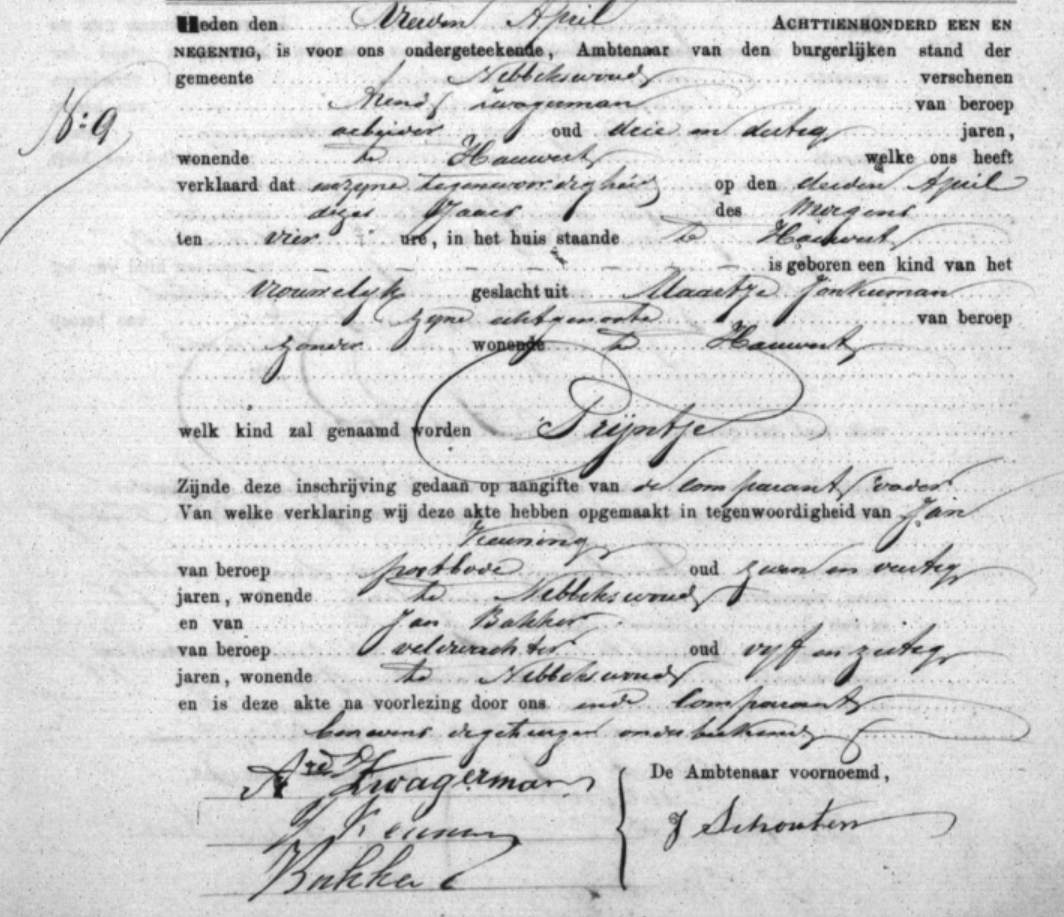 Heden den Vierden April ACHTTIENHONDERD EEN EN
NEGENTIG, is voor ons ondergeteekende, Ambtenaar van den burgerlijken stand der
gemeente Nibbikswoud verschenen
No: 9
Arend Zwagerman van beroep
arbeider oud drie en dertig jaren,
wonende te Hauwert welke ons heeft
verklaard dat in zyne tegenwoordigheid op den derden April
dezes Jaars des Morgens
ten vier ure, in het huis staande te Hauwert
is geboren een kind van het
Vrouwelyk geslacht uit Maartje Jonkerman
zyne echtgenoote van beroep
zonder wonende te Hauwert
welk kind zal genaamd worden Trijntje
Zijnde deze inschrijving gedaan op aangifte van de Comparant vader
Van welke verklaring wij deze akte hebben opgemaakt in tegenwoordigheid van Jan
Keuning
van beroep postbode oud zeven en veertig
jaren, wonende te Nibbikswoud
en van Jan Bakker
van beroep veldwachter oud vyf en zestig
jaren, wonende te Nibbikswoud
en is deze akte na voorlezing door ons en de Comparant
benevens de getuigen onderteekend
Ard Zwagerman De Ambtenaar voornoemd,
J Keuning J Schouten
Bakker